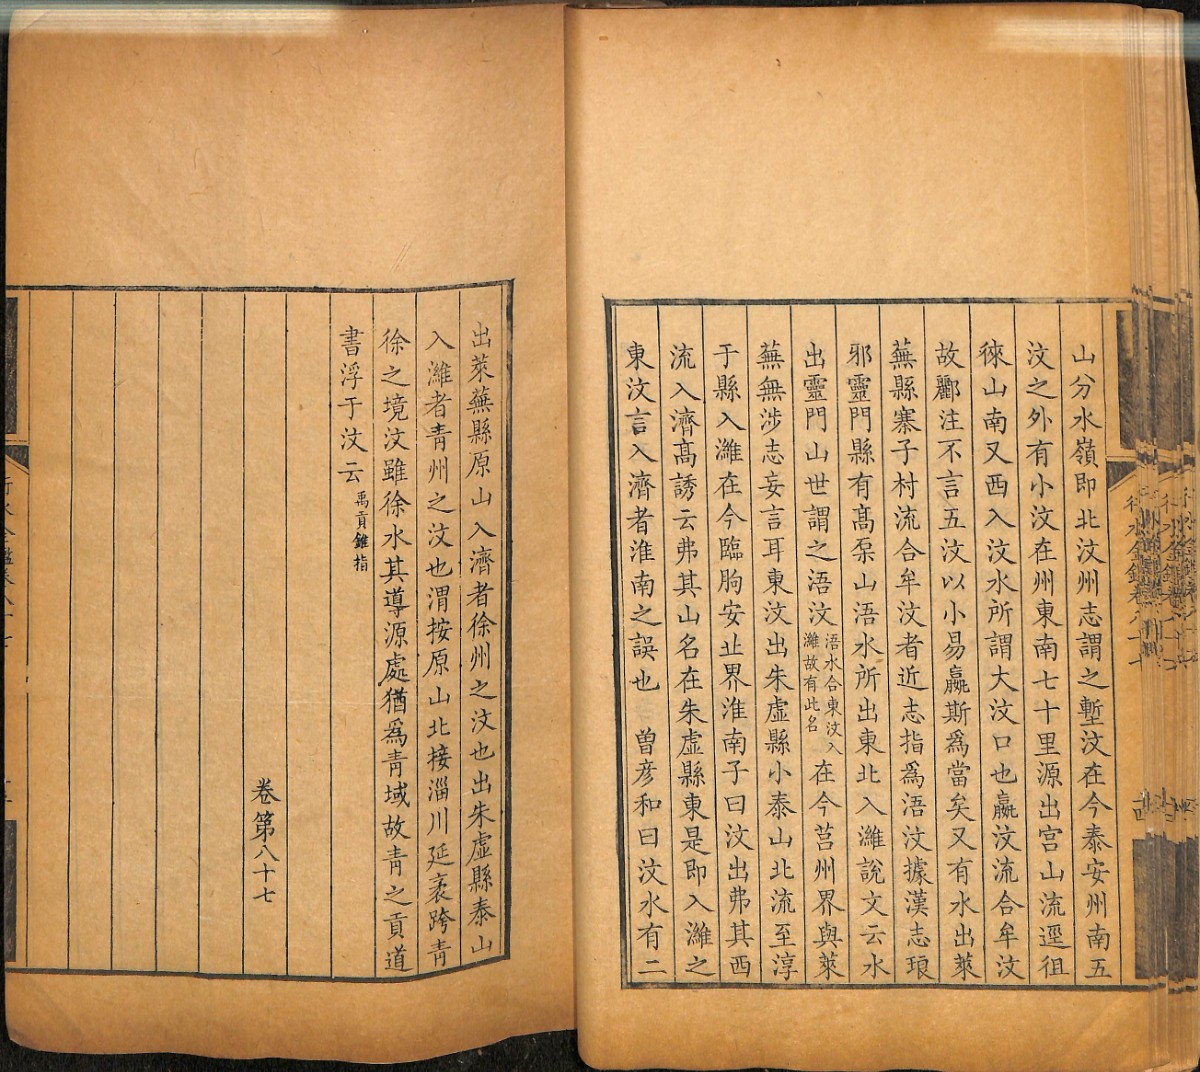 山分水嶺即北汶州志謂之塹汶在今泰安州南五
汶之外有小汶在州東南七十里源出宫山流逕徂
徠山南又西入汶水所謂大汶口也嬴汶流合牟汶
故酈注不言五汶以小易嬴斯為當矣又有水出萊
蕪縣寨子村流合牟汶者近志指為浯汶據漢志琅
邪靈門縣有高㞳山浯水所出東北入濰說文云水
出靈門山世謂之浯汶浯水合東汶入濰故有此名在今莒州界與萊
蕪無涉志妄言耳東汶出朱虛縣小泰山北流至淳
于縣入濰在今臨朐安丘界淮南子曰汶出弗其西
流入濟高誘云弗其山名在朱虛縣東是即入濰之
東汶言入濟者淮南之誤也　曾彦和曰汶水有二
出萊蕪縣原山入濟者徐州之汶也出朱虛縣泰山
入濰者青州之汶也渭按原山北接淄川延袤跨青
徐之境汶雖徐水其導源處猶為青域故青之貢道
書浮于汶云禹貢錐指
卷第八十七